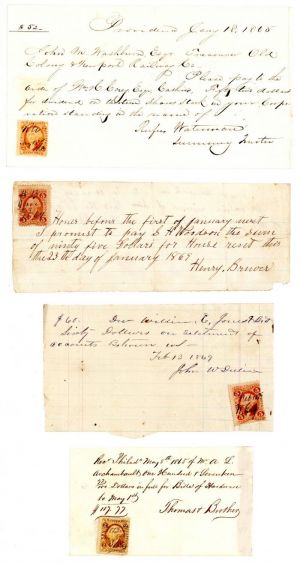 $52. Providence Aug 18, 1865
John M. Washburn Esq Treasurer Old
Colony & Newport Railway Co.
Please pay to the
order of Wm H. Esq Cashier, Fifty two dollars
for dividend on thirteen shares stock in your Corpo
ration standing in the name of
Rufus Waterman
On or before the first of January next
I promise to pay E H Woodson the sum
of ninty five Dollars for House rent this
the 23rd day of January 1869
Henry Brewer
$60. Due William E, Jones
Sixty Dollars on settlement of
accounts between us
Feb 13 1869
John W
Recd Philada May 8th 1865 of Mr A L
Archambault, One Hundred & Seventeen
Dollars in full for Bills of Hardware
to May 1st
$117.77 Thomas & Brother